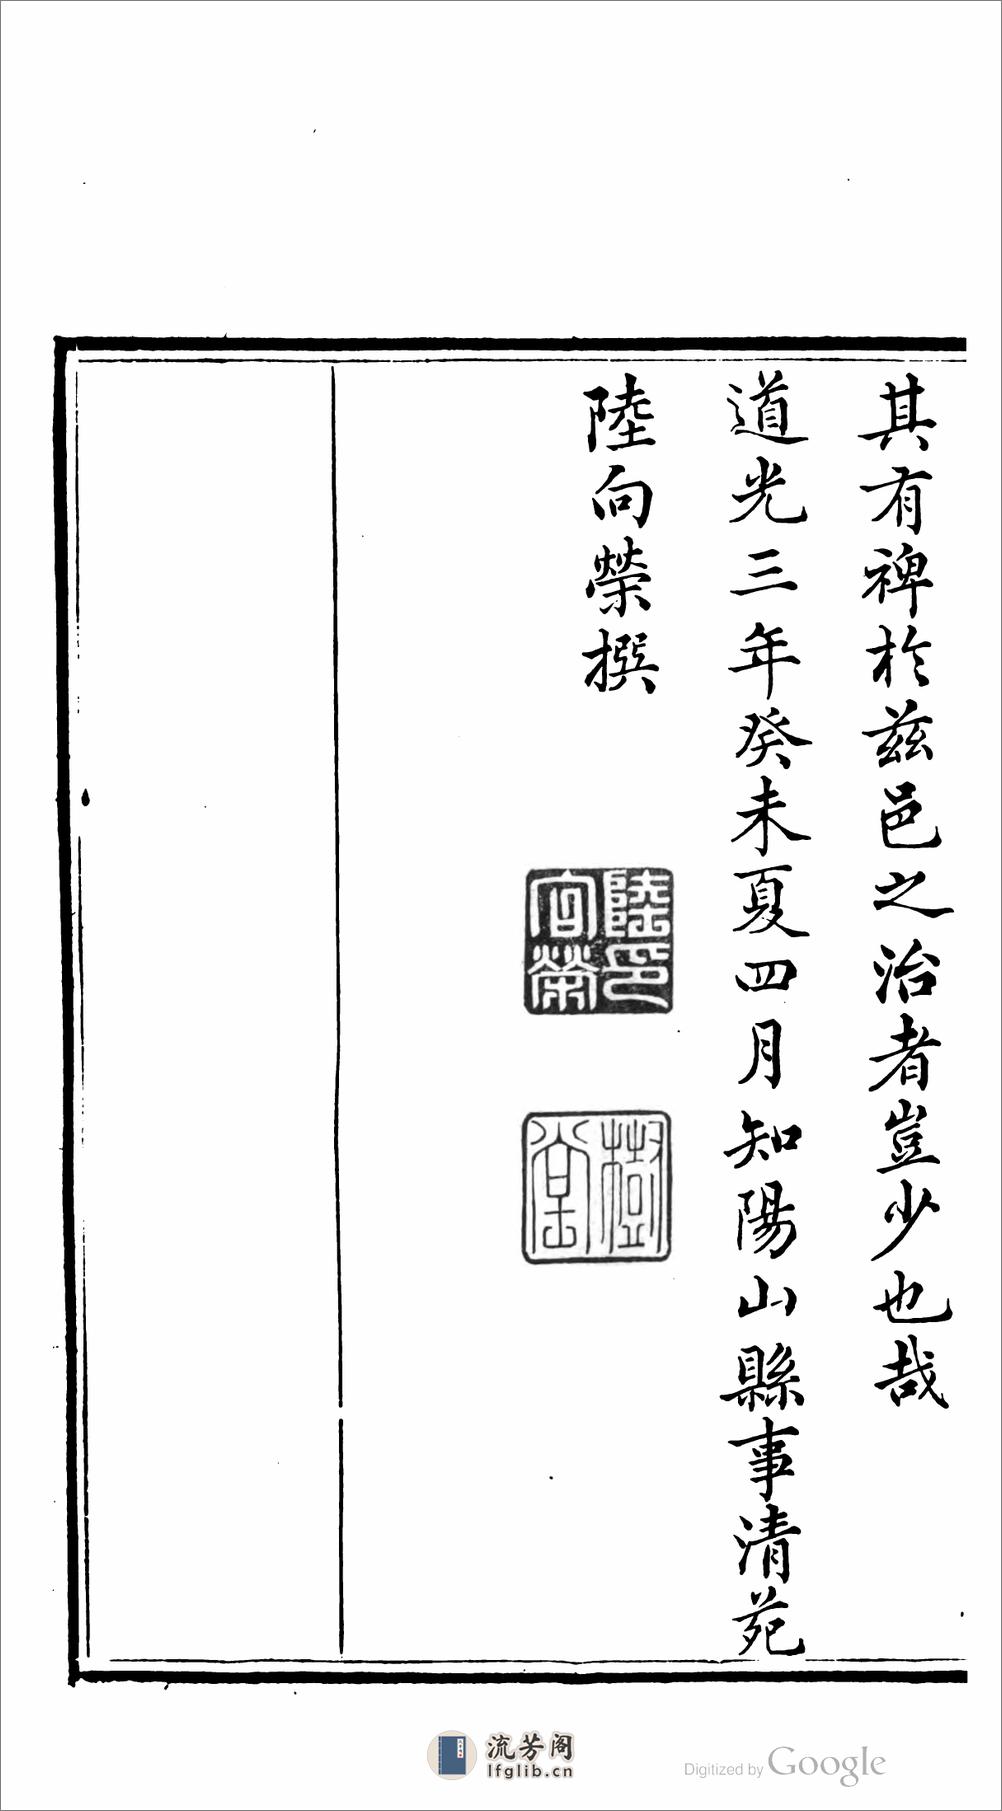 其有裨於茲邑之治者豈少也哉
道光三年癸未夏四月知陽山縣事清苑
陸向榮撰
陸印向榮
樹堂
流芳阁
lfglib.cn
Digitized by Google